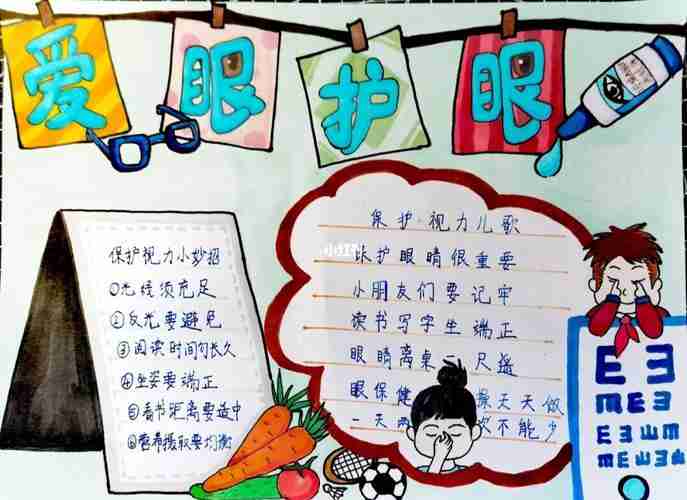 爱眼护眼
保护视力小妙招
①光线须充足
②反光要避免
③阅读时间勿长久
④坐姿要端正
⑤看书距离要适中
⑥营养摄取要均衡
保护视力儿歌
保护眼睛很重要
小朋友们要记牢
读书写字坐端正
眼睛离桌一尺遥
眼保健操天天做
一天两次不能少
E E
M E E
E E W M
M E W E M